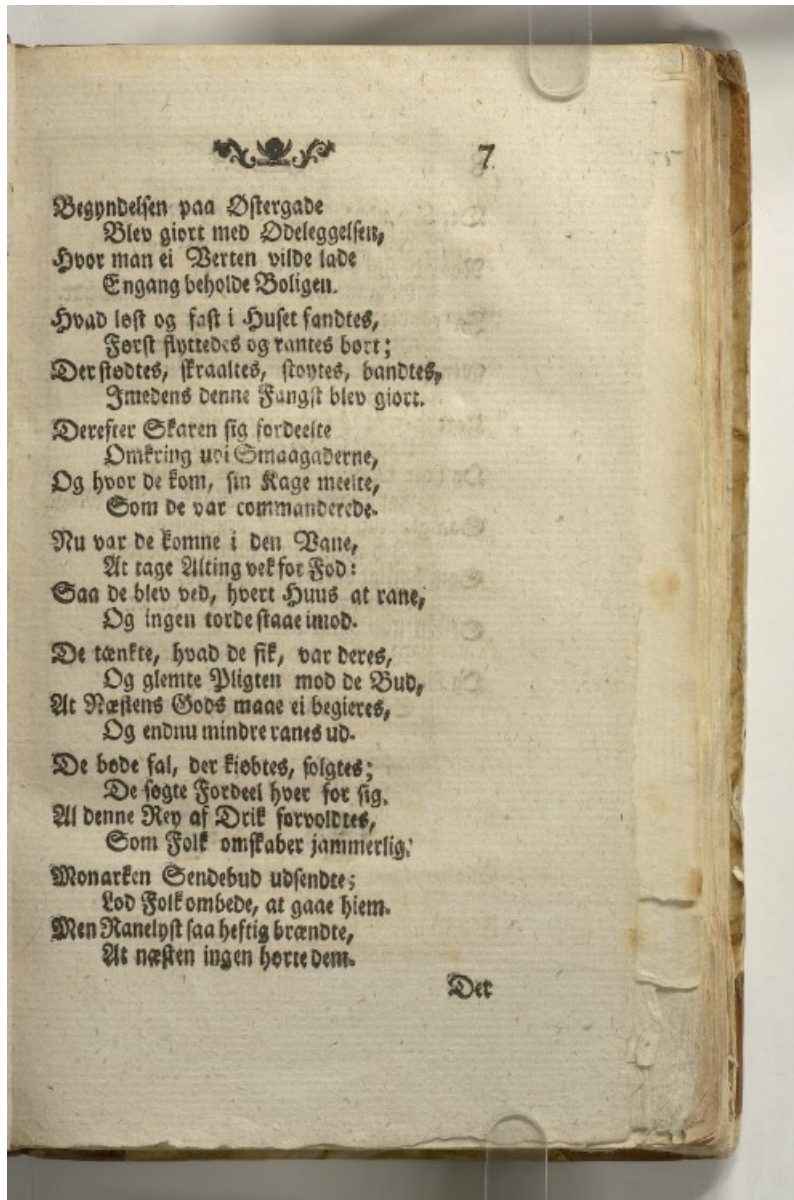 7.
Begyndelsen paa Østergade
Blev giort med Ødeleggelsen,
Hvor man ei Verten vilde lade
Engang beholde Boligen.
Hvad løst og fast i Huset fandtes,
Først flyttedes og rantes bort;
Der stødtes, skraaltes, støytes, bandtes,
Imedens denne Fangst blev giort.
Derefter Skaren sig fordeelte
Omkring udi Smaagaderne,
Og hvor de kom, sin Kage meelte,
Som de var commanderede.
Nu var de komne i den Vane,
At tage Alting vek for Fod:
Saa de blev ved, hvert Huus at rane,
Og ingen torde staae imod.
De tænkte, hvad de fik, var deres,
Og glemte Pligten mod de Bud,
At Næstens Gods maae ei begieres,
Og endnu mindre ranes ud.
De bøde fal, der kiøbtes, solgtes;
De søgte Fordeel hver for sig.
Al denne Rey af Drik forvoldtes,
Som Folk omskaber jammerlig.
Monarken Sendebud udsendte;
Lod Folk ombede, at gaae hiem.
Men Ranelyst saa heftig brændte,
At næsten ingen hørte dem.
Det